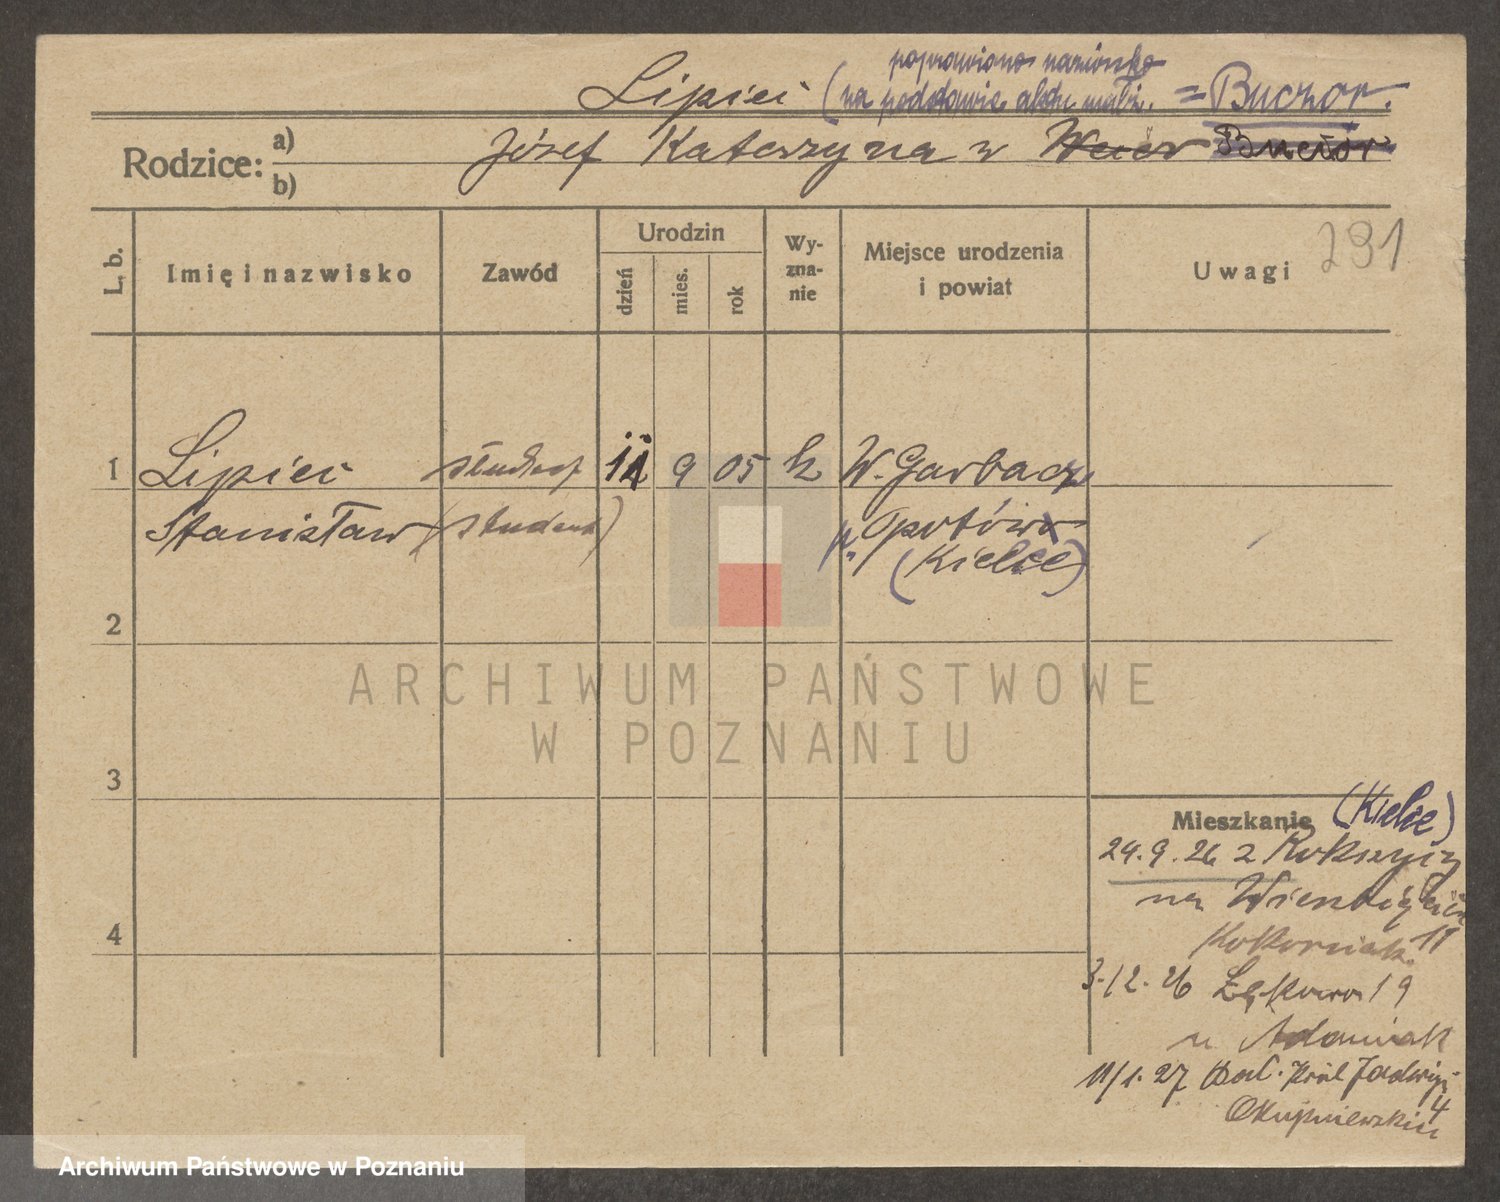 poprawiono nazwisko
Lipiec (na podstawie aktu małż. = Buczor.
Rodzice:
a)
b)
Józef Katarzyna z Bucior
291
L. b.
Imię i nazwisko
Zawód
Urodzin
dzień
mies.
rok
Wy-
zna-
nie
Miejsce urodzenia
i powiat
Uwagi
1
Lipiec
9 05 k W. Garbacz
Stanisław (student)
p. Opatów
(Kielce)
2
ARCHIWUM PAŃSTWOWE
W POZNANIU
3
4
Mieszkanie (Kielce)
24. 9. 26 z
na
11
3. 12. 26 Łąkowa 19
u Adamiak
11/1. 27 Król. Jadwigi
4
Archiwum Państwowe w Poznaniu